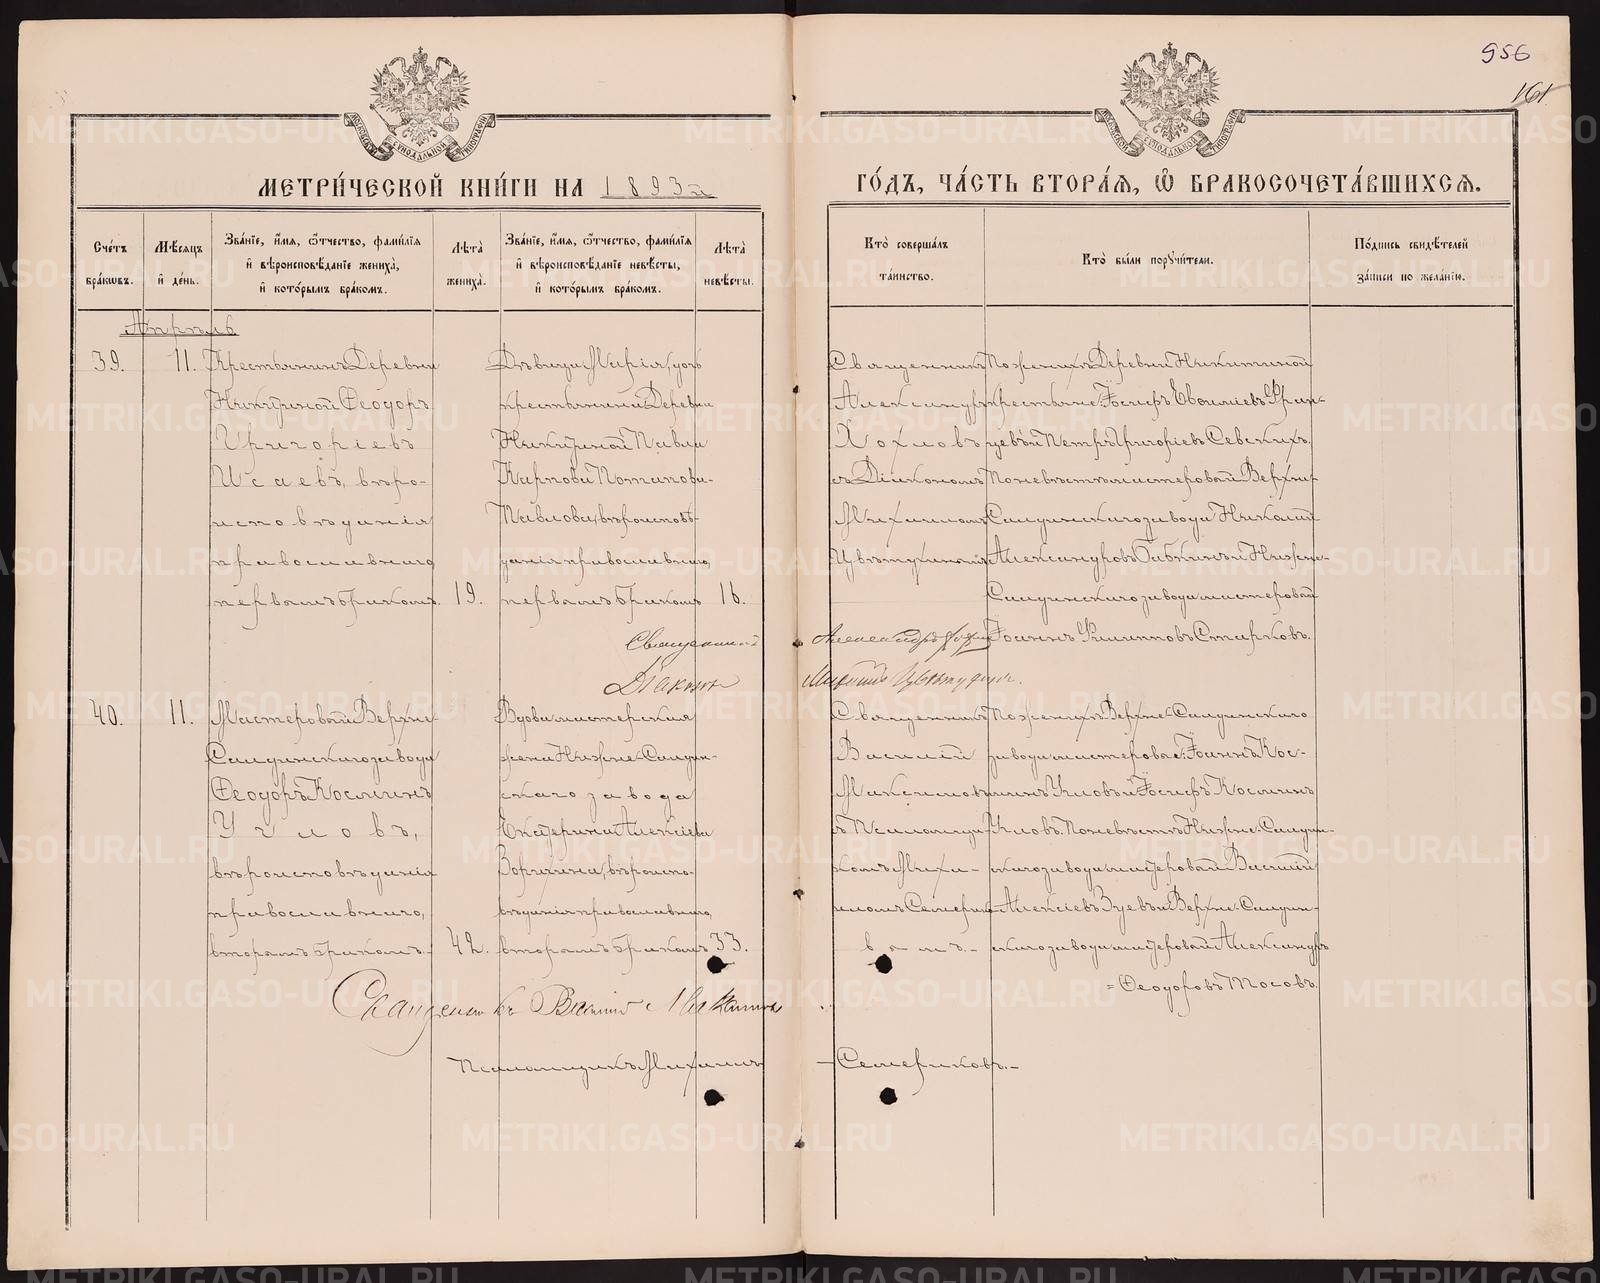 956
161
МЕТРИ́ЧЕСКОЙ КНИ́ГИ НА 1893й
ГО́ДЪ, ЧА́СТЬ ВТОРА́Я, Ѽ БРАКОСОЧЕТА́ВШИХСЯ.
Сче́тъ бра́кωвъ.
Мѣ́сяцъ и҆ де́нь.
Зва́нїе, и҆́мя, ѻ҆́тчество, фами́лїя
и҆ вѣроисповѣ́данїе жениха̀,
и҆ кото́рымъ бра́комъ.
Лѣта̀ жениха̀.
Зва́нїе, и҆́мя, ѻ҆́тчество, фами́лїя
и҆ вѣроисповѣ́данїе невѣ́сты,
и҆ кото́рымъ бра́комъ.
Лѣта̀ невѣ́сты.
Кто̀ соверша́лъ
та́инство.
Кто̀ бы́ли порꙋчи́тели.
По́дпись свидѣ́телей
за́писи по жела́нїю.
Апрѣль
39.
11.
Крестьянинъ Деревни
Никитиной Ѳеодоръ
Григоріевъ
Исаевъ, вѣро-
исповѣданія
православнаго,
первымъ бракомъ.
19.
Дѣвица Марія, дочь
крестьянина Деревни
Никитиной Павла
Карпова Потапова-
Павлова, вѣроисповѣ-
данія православнаго,
первымъ бракомъ
16.
Священникъ
Александръ
Хохловъ
съ Діакономъ
Михаиломъ
Цвѣтухинымъ
По женихѣ Деревни Никитиной
крестьяне: Іосифъ
и Петръ Григоріевъ Севскихъ.
По невѣстѣ мастеровой Верхне-
Салдинскаго завода Николай
Александровъ Бабкинъ и Нижне-
Салдинскаго завода мастеровой
Іоаннъ Филипповъ Старковъ.
Священникъ Александръ Хохловъ
Діаконъ Михаилъ Цвѣтухинъ.
40.
11.
Мастеровой Верхне-
Салдинскаго завода
Ѳеодоръ Косминъ
вѣроисповѣданія
православнаго,
вторымъ бракомъ.
42.
Вдова мастерская
жена Нижне-Салдин-
скаго завода
Екатерина Алексіева
Зорихина, вѣроиспо-
вѣданія православнаго,
вторымъ бракомъ
33.
Священникъ
Василій
Максимовъ
съ Псаломщи-
комъ Михаи-
ломъ Семерико-
вымъ.
По женихѣ Верхне-Салдинскаго
завода мастеровые: Іоаннъ Кос-
минъ и Іосифъ Косминъ
По невѣстѣ Нижне-Салдин-
скаго завода мастеровой Василій
Алексіевъ Зуевъ и Верхне-Салдин-
скаго завода мастеровой Александръ
Ѳеодоровъ Тосовъ.
Священникъ Василій Максимовъ
Псаломщикъ Михаилъ Семериковъ.